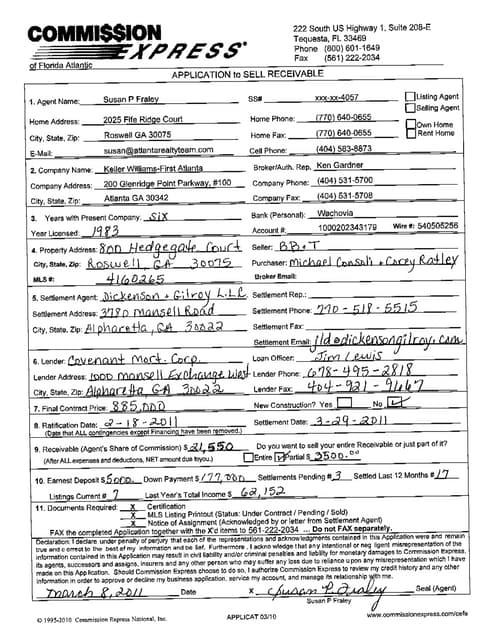 COMMI$$ION EXPRESS®
of Florida Atlantic
222 South US Highway 1, Suite 208-E
Tequesta, FL 33469
Phone (800) 601-1649
Fax (561) 222-2034
APPLICATION to SELL RECEIVABLE
1. Agent Name: Susan P Fraley SS# xxx-xx-4057 Listing Agent
Selling Agent
Home Address: 2025 Fife Ridge Court Home Phone: (770) 640-0655 Own Home
City, State, Zip: Roswell GA 30075 Home Fax: (770) 640-0655 Rent Home
E-Mail: susan@atlantarealtyteam.com Cell Phone: (404) 583-8873
2. Company Name: Keller Williams-First Atlanta Broker/Auth. Rep. Ken Gardner
Company Address: 200 Glenridge Point Parkway, #100 Company Phone: (404) 531-5700
City, State, Zip: Atlanta GA 30342 Company Fax: (404) 531-5708
3. Years with Present Company: Six Bank (Personal) Wachovia
Year Licensed: 1983 Account#: 1000202343179 Wire #: 540505256
4. Property Address: 800 Hedgegate Court Seller: BB+T
City, State, Zip: Roswell, GA 30075 Purchaser: Michael Consoli + Corey Ratley
MLS #: 4160265 Broker Email:
5. Settlement Agent: Dickenson + Gilroy L.L.C. Settlement Rep.:
Settlement Address: 3780 Mansell Road Settlement Phone: 770-518-5515
City, State, Zip: Alpharetta, GA 30022 Settlement Fax:
Settlement Email: jld@dickensongilroy.com
6. Lender: Covenant Mort. Corp. Loan Officer: Jim Lewis
Lender Address: 1000 Mansell Exchange West Lender Phone: 678-495-2818
City, State, Zip: Alpharetta GA 30022 Lender Fax: 404-921-9667
7. Final Contract Price: 885,000 New Construction? Yes No ✓
8. Ratification Date: 2-18-2011 Settlement Date: 3-29-2011
(Date that ALL contingencies except Financing have been removed.)
9. Receivable (Agent's Share of Commission) $ 21,550 Do you want to sell your entire Receivable or just part of it?
(After ALL expenses and deductions, NET amount due to you.) Entire ✓ Partial $ 3500.00
10. Earnest Deposit $ 5000. Down Payment $ 177,000 Settlements Pending # 3 Settled Last 12 Months # 17
Listings Current # 7 Last Year's Total Income $ 62,152
11. Documents Required: X Certification
X MLS Listing Printout (Status: Under Contract / Pending / Sold)
X Notice of Assignment (Acknowledged by or letter from Settlement Agent)
FAX the completed Application together with the X'd items TO (561) 222-2034 ... Do not FAX separately.
Declaration: I declare under penalty of perjury that each of the representations and acknowledgments contained in this Application were and remain
true and correct to the best of my information and belief. Furthermore, I acknowledge that any intentional or negligent misrepresentation of the
information contained in this Application may result in civil liability and/or criminal penalties and liability for monetary damages to Commission Express,
its agents, successors and assigns, insurers and any other person who may suffer any loss due to reliance upon any misrepresentation which I have
made on this Application. Should Commission Express choose to do so, I authorize Commission Express to review my credit history and any other
information in order to approve or decline my business application, service my account, and manage its relationship with me.
March 8, 2011 Date x Susan P Fraley Seal (Agent)
Susan P Fraley
© 1995-2010 Commission Express National, Inc. APPLICAT 03/10 www.commissionexpress.com/cefa